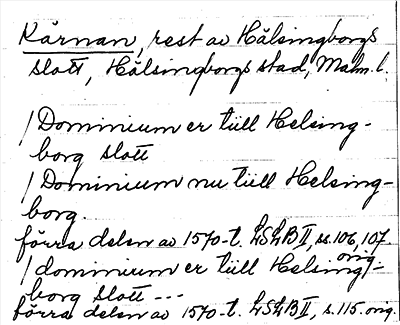 Kärnan, rest av Hälsingborgs
slott, Hälsingborgs stad, Malm. l.
/ Dominium er till Helsing-
borg slott
/ Dominium nu till Helsing-
borg.
förra delen av 1570-t. LSLB II, ss. 106, 107
orig.
/ dominium er till Helsing-
borg slott ---
förra delen av 1570-t. LSLB II, s. 115. orig.